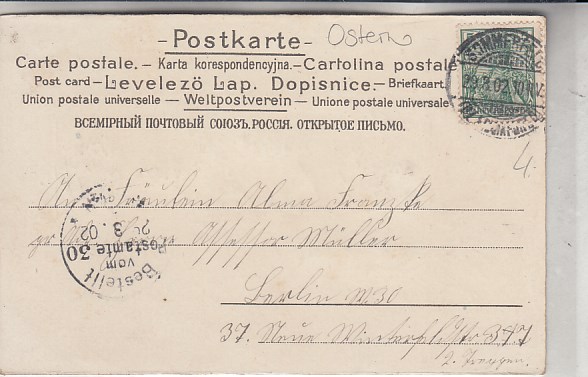 Ostern
- Postkarte -
Carte postale. - Karta korespondencyjna. - Cartolina postale
Post card - Levelezö Lap. Dopisnice. - Briefkaart.
Union postale universelle - Weltpostverein - Unione postale universale
ВСЕМІРНЫЙ ПОЧТОВЫЙ СОЮЗЪ. РОССІЯ. ОТКРЫТОЕ ПИСЬМО.
4.
An Fräulein Alma Franzke
Assessor Müller
Berlin W 30
37. Neue Winterf. Str. 37
Bestellt
vom
Postamte 30
3. 02